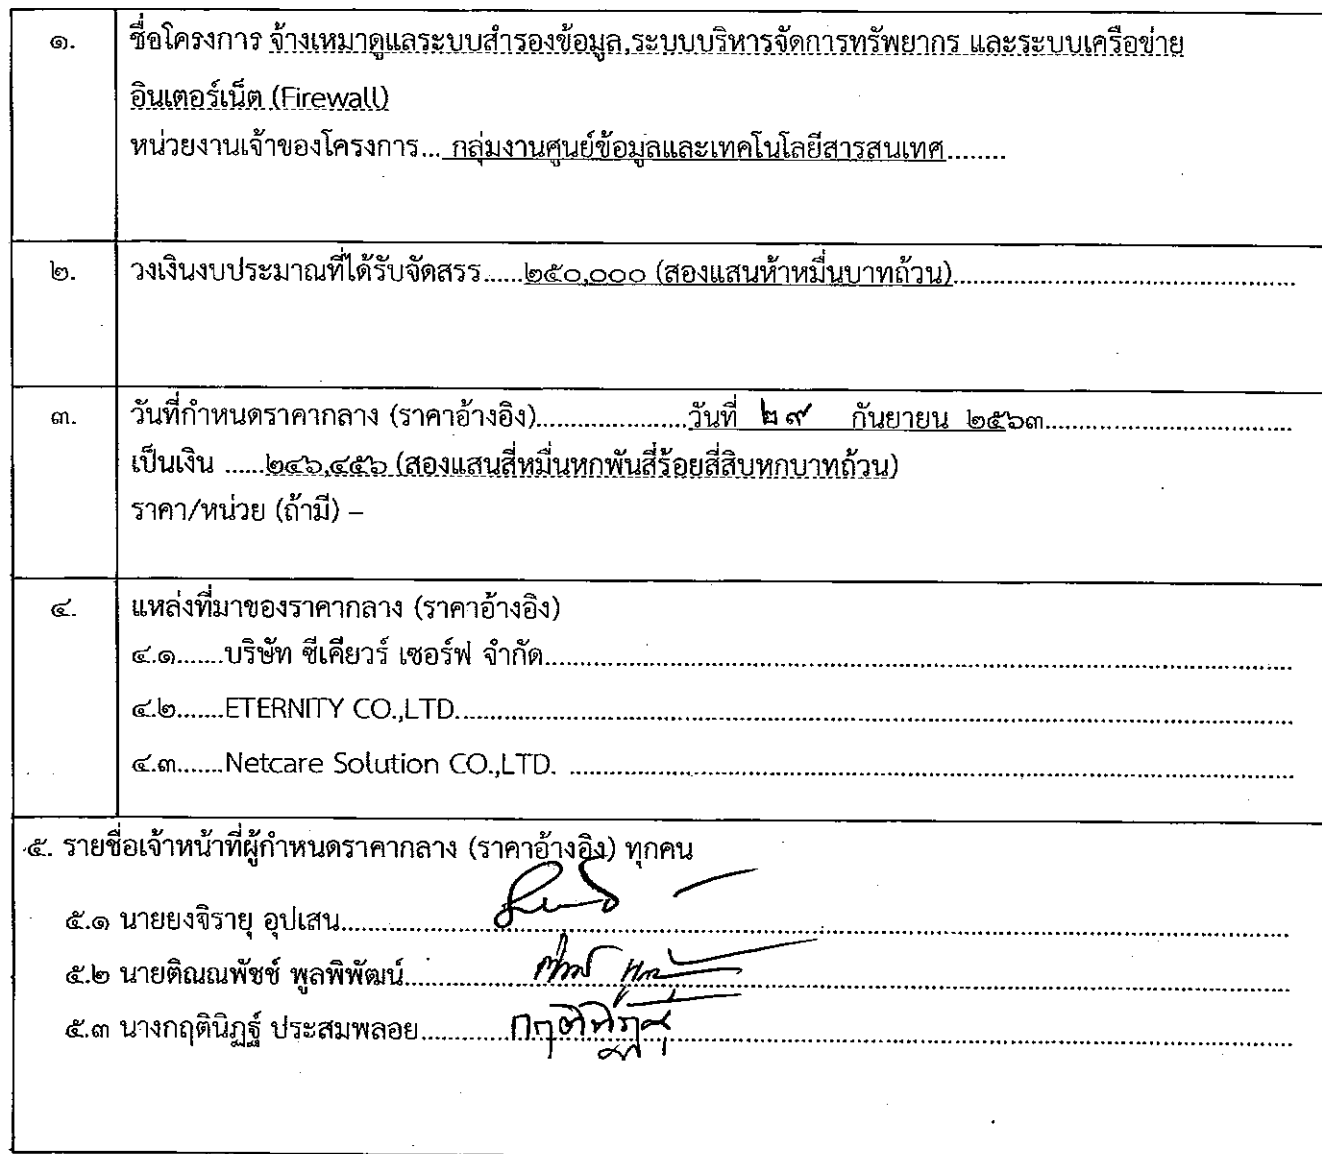 ๑. ชื่อโครงการ จ้างเหมาดูแลระบบสำรองข้อมูล,ระบบบริหารจัดการทรัพยากร และระบบเครือข่าย
อินเตอร์เน็ต (Firewall)
หน่วยงานเจ้าของโครงการ... กลุ่มงานศูนย์ข้อมูลและเทคโนโลยีสารสนเทศ........
๒. วงเงินงบประมาณที่ได้รับจัดสรร......๒๕๐,๐๐๐ (สองแสนห้าหมื่นบาทถ้วน)............................................
๓. วันที่กำหนดราคากลาง (ราคาอ้างอิง)....................วันที่ ๒๙ กันยายน ๒๕๖๓.................................
เป็นเงิน ......๒๔๖,๔๕๖ (สองแสนสี่หมื่นหกพันสี่ร้อยสี่สิบหกบาทถ้วน)
ราคา/หน่วย (ถ้ามี) –
๔. แหล่งที่มาของราคากลาง (ราคาอ้างอิง)
๔.๑.......บริษัท ซีเคียวร์ เซอร์ฟ จำกัด....................................................................................
๔.๒.......ETERNITY CO.,LTD................................................................................................
๔.๓.......Netcare Solution CO.,LTD. ................................................................................
๕. รายชื่อเจ้าหน้าที่ผู้กำหนดราคากลาง (ราคาอ้างอิง) ทุกคน
๕.๑ นายยงจิรายุ อุปเสน....................................................................................
๕.๒ นายติณณพัชช์ พูลพิพัฒน์....................................................................................
๕.๓ นางกฤตินิฏฐ์ ประสมพลอย.............กฤตินิฏฐ์...............................................................